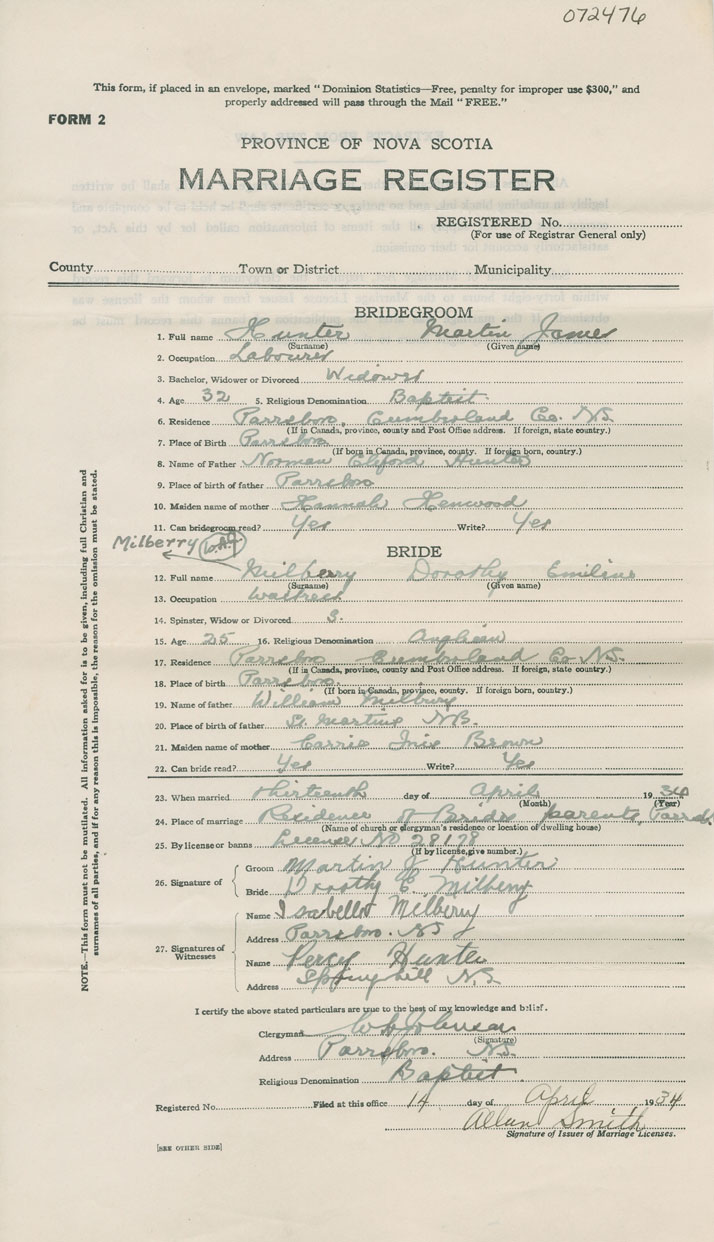 072476
This form, if placed in an envelope, marked "Dominion Statistics—Free, penalty for improper use $300," and
properly addressed will pass through the Mail "FREE."
FORM 2
PROVINCE OF NOVA SCOTIA
MARRIAGE REGISTER
REGISTERED No.
(For use of Registrar General only)
County Town or District Municipality
BRIDEGROOM
1. Full name Hunter Martin James
(Surname) (Given name)
2. Occupation Labourer
3. Bachelor, Widower or Divorced Widower
4. Age 32 5. Religious Denomination Baptist
6. Residence Parrsboro, Cumberland Co. N.S.
(If in Canada, province, county and Post Office address. If foreign, state country.)
7. Place of Birth Parrsboro
(If born in Canada, province, county. If foreign born, country.)
8. Name of Father Norman Cliford Hunter
9. Place of birth of father Parrsboro
10. Maiden name of mother Hannah Henwood
11. Can bridegroom read? Yes Write? Yes
Milberry
BRIDE
12. Full name Milberry Dorothy Emiline
(Surname) (Given name)
13. Occupation Waitress
14. Spinster, Widow or Divorced S.
15. Age 25 16. Religious Denomination Anglican
17. Residence Parrsboro Cumberland Co N.S.
(If in Canada, province, county and Post Office address. If foreign, state country.)
18. Place of birth Parrsboro
(If born in Canada, province, county. If foreign born, country.)
19. Name of father William Milbury
20. Place of birth of father St. Martins N.B.
21. Maiden name of mother Carrie Inis Brown
22. Can bride read? Yes Write? Yes
23. When married thirteenth day of April 1934
(Month) (Year)
24. Place of marriage Residence of Brides parents, Parrsb.
(Name of church or clergyman's residence or location of dwelling house)
25. By license or banns License No 28178
(If by license, give number.)
26. Signature of Groom Martin J Hunter
Bride Dorothy E. Milberry
27. Signatures of Witnesses
Name Isabelle Milberry
Address Parrsboro. N.S
Name Percy Hunter
Address Springhill N.S.
I certify the above stated particulars are true to the best of my knowledge and belief.
Clergyman Johnson
(Signature)
Address Parrsboro. N.S.
Religious Denomination Baptist
Registered No. Filed at this office 14 day of April 1934
Allan Smith
Signature of Issuer of Marriage Licenses.
[SEE OTHER SIDE]
NOTE.—This form must not be mutilated. All information asked for is to be given, including full Christian and
surnames of all parties, and if for any reason this is impossible, the reason for the omission must be stated.